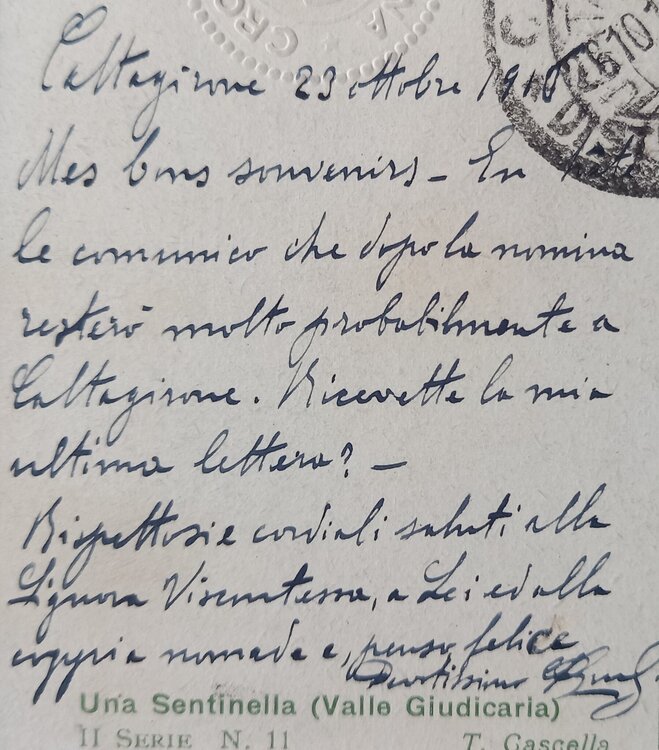 CROC NA
26.10.1
Caltagirone 23 ottobre 1918
Mes bons souvenirs – En hâte
le comunico che dopo la nomina
resterò molto probabilmente a
Caltagirone. Ricevette la mia
ultima lettera? –
Rispettosi e cordiali saluti alla
Signora Viscontessa, a Lei ed alla
coppia nomade e, penso, felice
Devotissimo
Una Sentinella (Valle Giudicaria)
II SERIE N. 11 T. Cascella